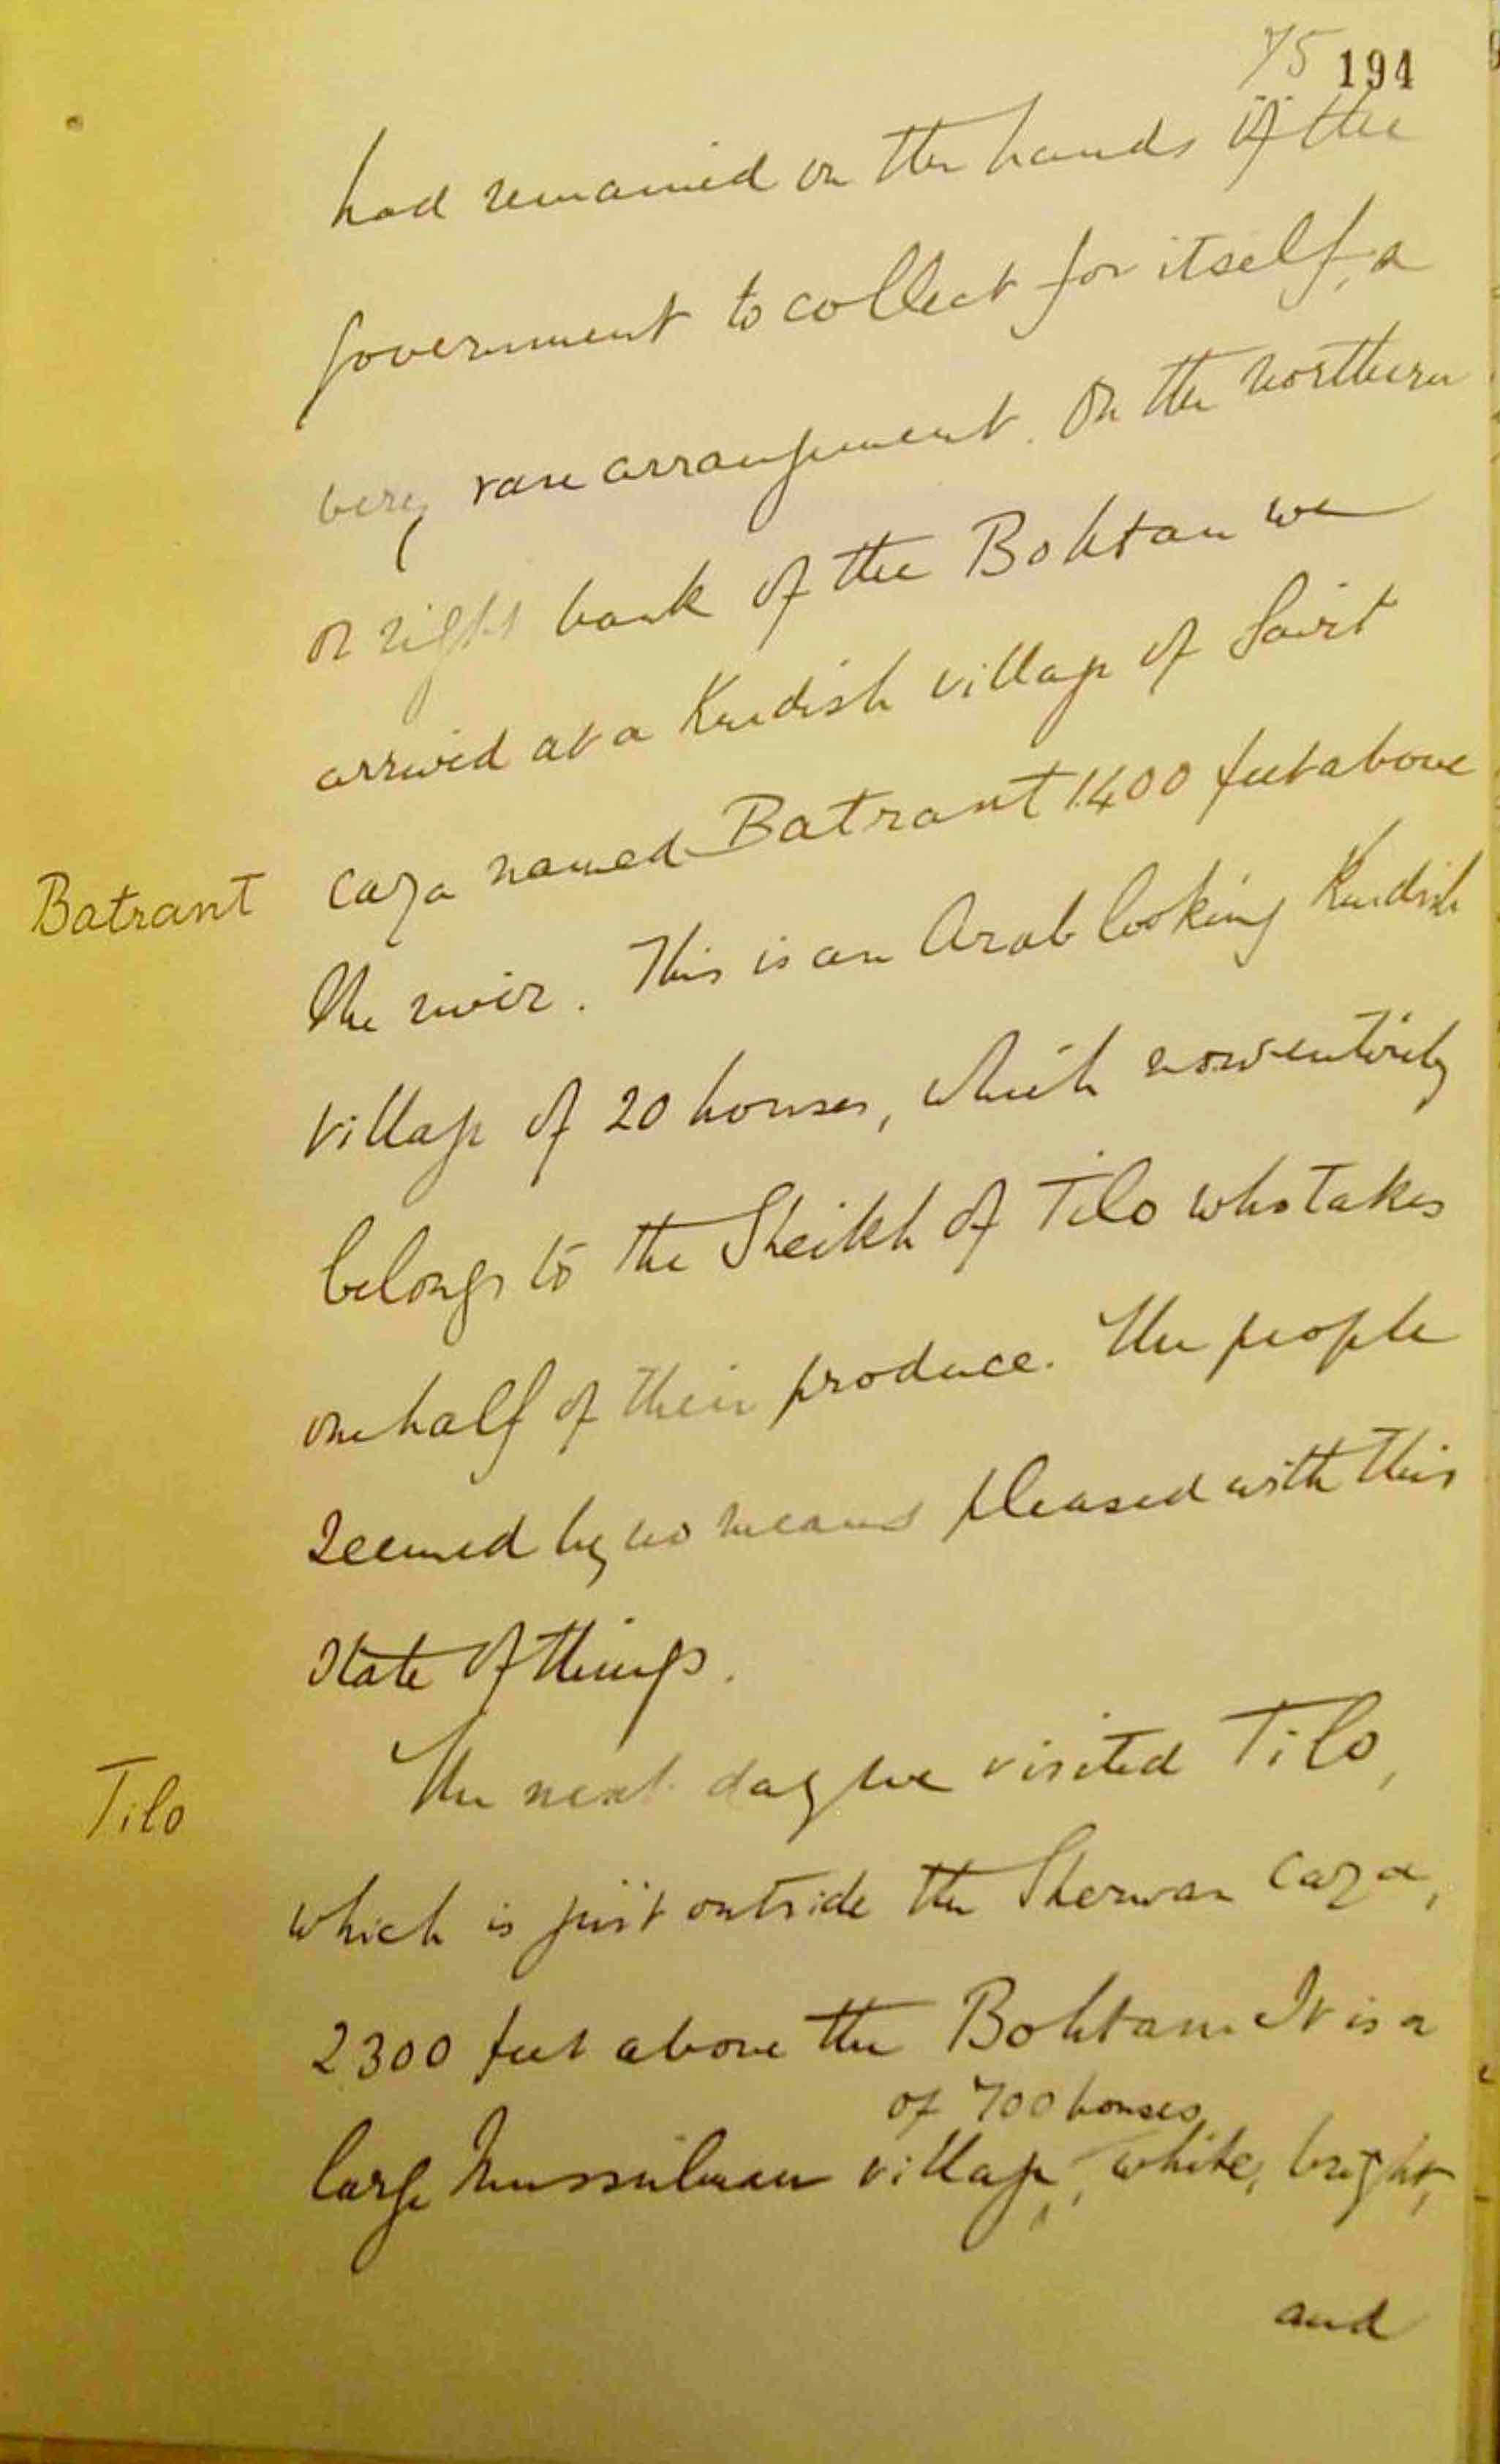 75 194
had remained on the hands of the
Government to collect for itself, a
very rare arrangement. On the northern
or right bank of the Bohtan we
arrived at a Kurdish village of Sairt
Batrant caza named Batrant 1400 feet above
the river. This is an Arab looking Kurdish
village of 20 houses, which now entirely
belongs to the Sheikh of Tilo who takes
one half of their produce. The people
seemed by no means pleased with this
state of things.
Tilo The next day we visited Tilo,
which is just outside the Sherwan caza,
2300 feet above the Bohtan. It is a
of 700 houses,
large Mussulman village, white, bright,
and